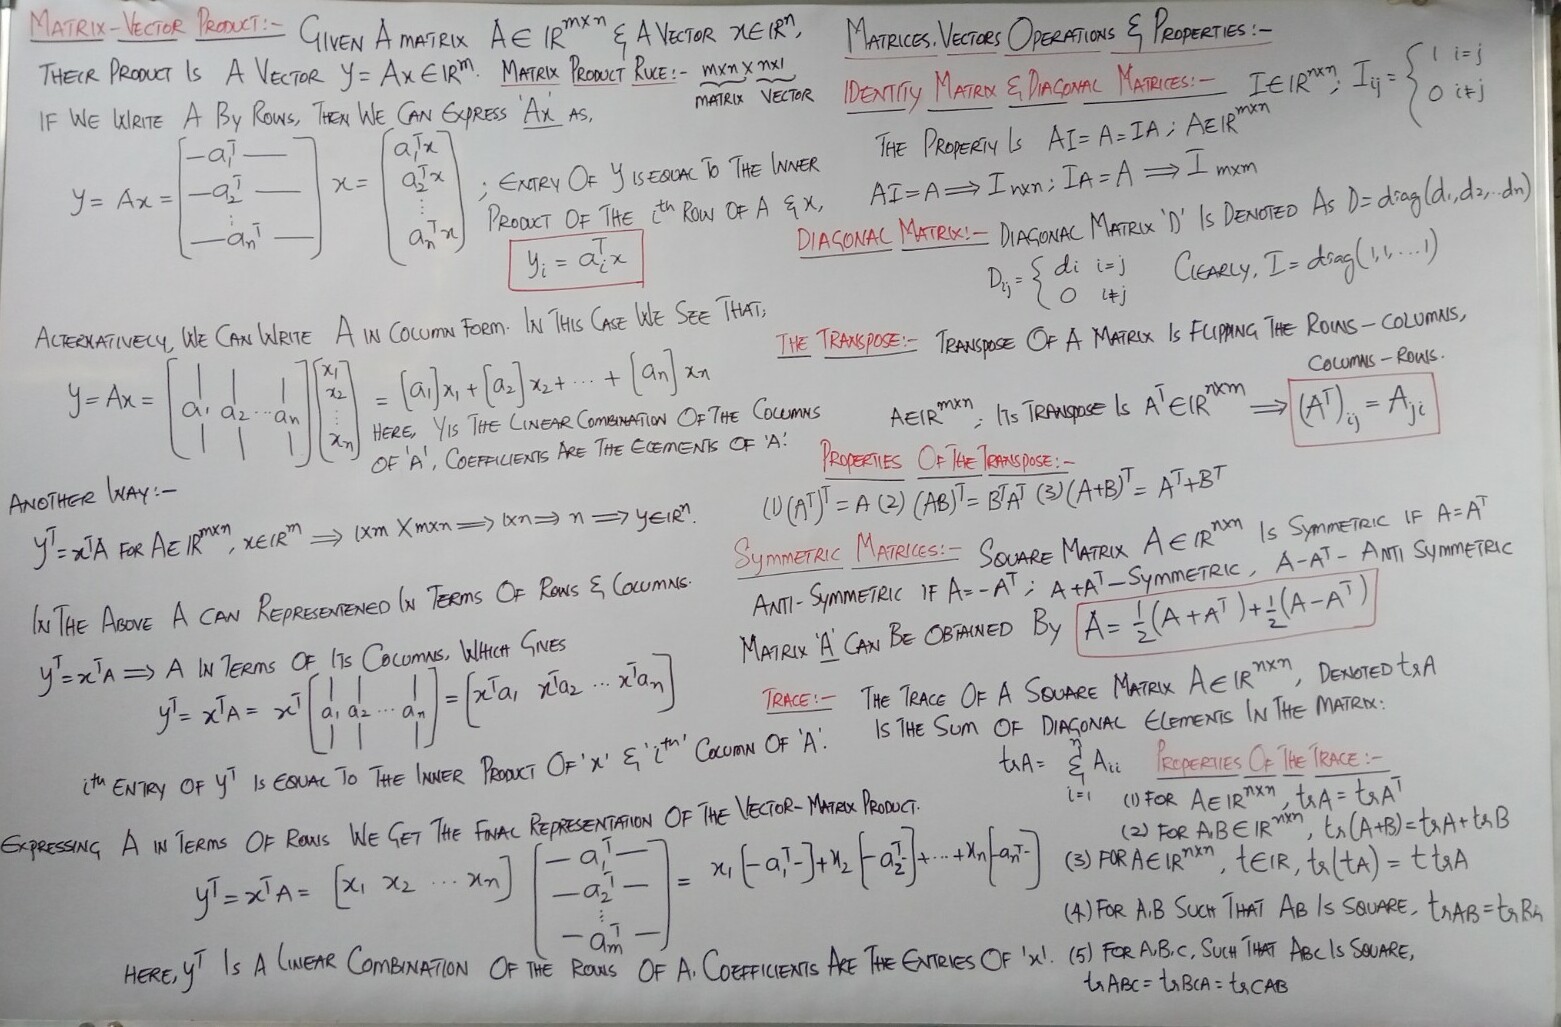 MATRIX-VECTOR PRODUCT:- GIVEN A MATRIX A ∈ ℝ^{m×n} & A VECTOR x ∈ ℝ^n,
THEIR PRODUCT IS A VECTOR y = Ax ∈ ℝ^m. MATRIX PRODUCT RULE:- m×n × n×1
MATRIX VECTOR
IF WE WRITE A BY ROWS, THEN WE CAN EXPRESS 'Ax' AS,
y = Ax = [ —a₁ᵀ— ; —a₂ᵀ— ; ⋮ ; —aₙᵀ— ] x = [ a₁ᵀx ; a₂ᵀx ; ⋮ ; aₙᵀx ] ; ENTRY OF y IS EQUAL TO THE INNER
PRODUCT OF THE iᵗʰ ROW OF A & x,
yᵢ = aᵢᵀx
ALTERNATIVELY, WE CAN WRITE A IN COLUMN FORM. IN THIS CASE WE SEE THAT,
y = Ax = [ | | | ; a₁ a₂ ... aₙ ; | | | ] [ x₁ ; x₂ ; ⋮ ; xₙ ] = [a₁]x₁ + [a₂]x₂ + ... + [aₙ]xₙ
HERE, Y IS THE LINEAR COMBINATION OF THE COLUMNS
OF 'A', COEFFICIENTS ARE THE ELEMENTS OF 'A'.
ANOTHER WAY:-
yᵀ = xᵀA FOR A ∈ ℝ^{m×n}, x ∈ ℝ^m ⟹ 1×m × m×n ⟹ 1×n ⟹ n ⟹ y ∈ ℝⁿ.
IN THE ABOVE A CAN REPRESENTENED IN TERMS OF ROWS & COLUMNS.
yᵀ = xᵀA ⟹ A IN TERMS OF ITS COLUMNS, WHICH GIVES
yᵀ = xᵀA = xᵀ [ | | | ; a₁ a₂ ... aₙ ; | | | ] = [xᵀa₁ xᵀa₂ ... xᵀaₙ]
iᵗʰ ENTRY OF yᵀ IS EQUAL TO THE INNER PRODUCT OF 'x' & 'iᵗʰ' COLUMN OF 'A'.
EXPRESSING A IN TERMS OF ROWS WE GET THE FINAL REPRESENTATION OF THE VECTOR-MATRIX PRODUCT.
yᵀ = xᵀA = [x₁ x₂ ... xₙ] [ —a₁ᵀ— ; —a₂ᵀ— ; ⋮ ; —aₘᵀ— ] = x₁[-a₁ᵀ-] + x₂[-a₂ᵀ-] + ... + xₙ[-aₙᵀ-]
HERE, yᵀ IS A LINEAR COMBINATION OF THE ROWS OF A. COEFFICIENTS ARE THE ENTRIES OF 'x'.
MATRICES, VECTORS OPERATIONS & PROPERTIES:-
IDENTITY MATRIX & DIAGONAL MATRICES:- I ∈ ℝ^{n×n}; Iᵢⱼ = { 1 i=j ; 0 i≠j
THE PROPERTY IS AI = A = IA ; A ∈ ℝ^{m×n}
AI = A ⟹ I n×n ; IA = A ⟹ I m×m
DIAGONAL MATRIX:- DIAGONAL MATRIX 'D' IS DENOTED AS D = diag(d₁,d₂,..dn)
Dᵢⱼ = { di i=j ; 0 i≠j CLEARLY, I = diag(1,1,...1)
THE TRANSPOSE:- TRANSPOSE OF A MATRIX IS FLIPPING THE ROWS-COLUMNS,
COLUMNS-ROWS.
A ∈ ℝ^{m×n}; ITS TRANSPOSE IS Aᵀ ∈ ℝ^{n×m} ⟹ (Aᵀ)ᵢⱼ = Aⱼᵢ
PROPERTIES OF THE TRANSPOSE:-
(1) (Aᵀ)ᵀ = A (2) (AB)ᵀ = BᵀAᵀ (3) (A+B)ᵀ = Aᵀ+Bᵀ
SYMMETRIC MATRICES:- SQUARE MATRIX A ∈ ℝ^{n×n} IS SYMMETRIC IF A=Aᵀ
ANTI-SYMMETRIC IF A=-Aᵀ ; A+Aᵀ—SYMMETRIC, A-Aᵀ- ANTI SYMMETRIC
MATRIX 'A' CAN BE OBTAINED BY A = ½(A+Aᵀ)+½(A-Aᵀ)
TRACE:- THE TRACE OF A SQUARE MATRIX A ∈ ℝ^{n×n}, DENOTED trA
IS THE SUM OF DIAGONAL ELEMENTS IN THE MATRIX:
trA = Σ_{i=1}^{n} Aᵢᵢ PROPERTIES OF THE TRACE:-
(1) FOR A ∈ ℝ^{n×n}, trA = trAᵀ
(2) FOR A,B ∈ ℝ^{n×n}, tr(A+B)=trA+trB
(3) FOR A ∈ ℝ^{n×n}, t ∈ ℝ, tr(tA) = t trA
(4) FOR A,B SUCH THAT AB IS SQUARE, trAB = trBA
(5) FOR A,B,C, SUCH THAT ABC IS SQUARE,
trABC = trBCA = trCAB